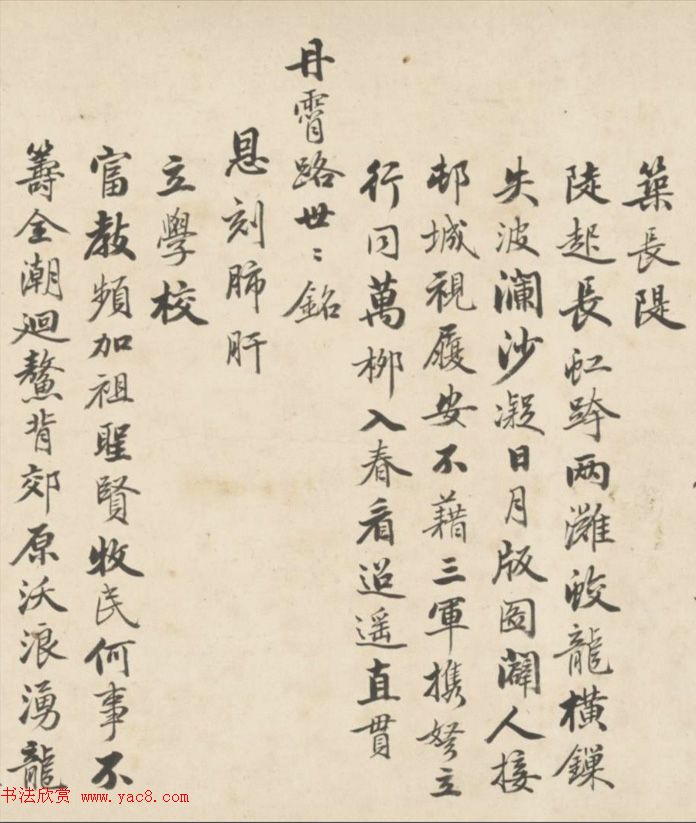 築長隄
陡起長虹跨两灘蛟龍橫鏁
失波瀾沙凝日月版圖闊人接
邨城視履安不藉三軍携弩立
行同萬栁入春看迢遥直貫
丹霄路世〻銘
恩刻肺肝
立學校
富教頻加祖聖賢牧民何事不
籌全潮迴鰲背郊原沃浪湧龍
书法欣赏 www.yac8.com